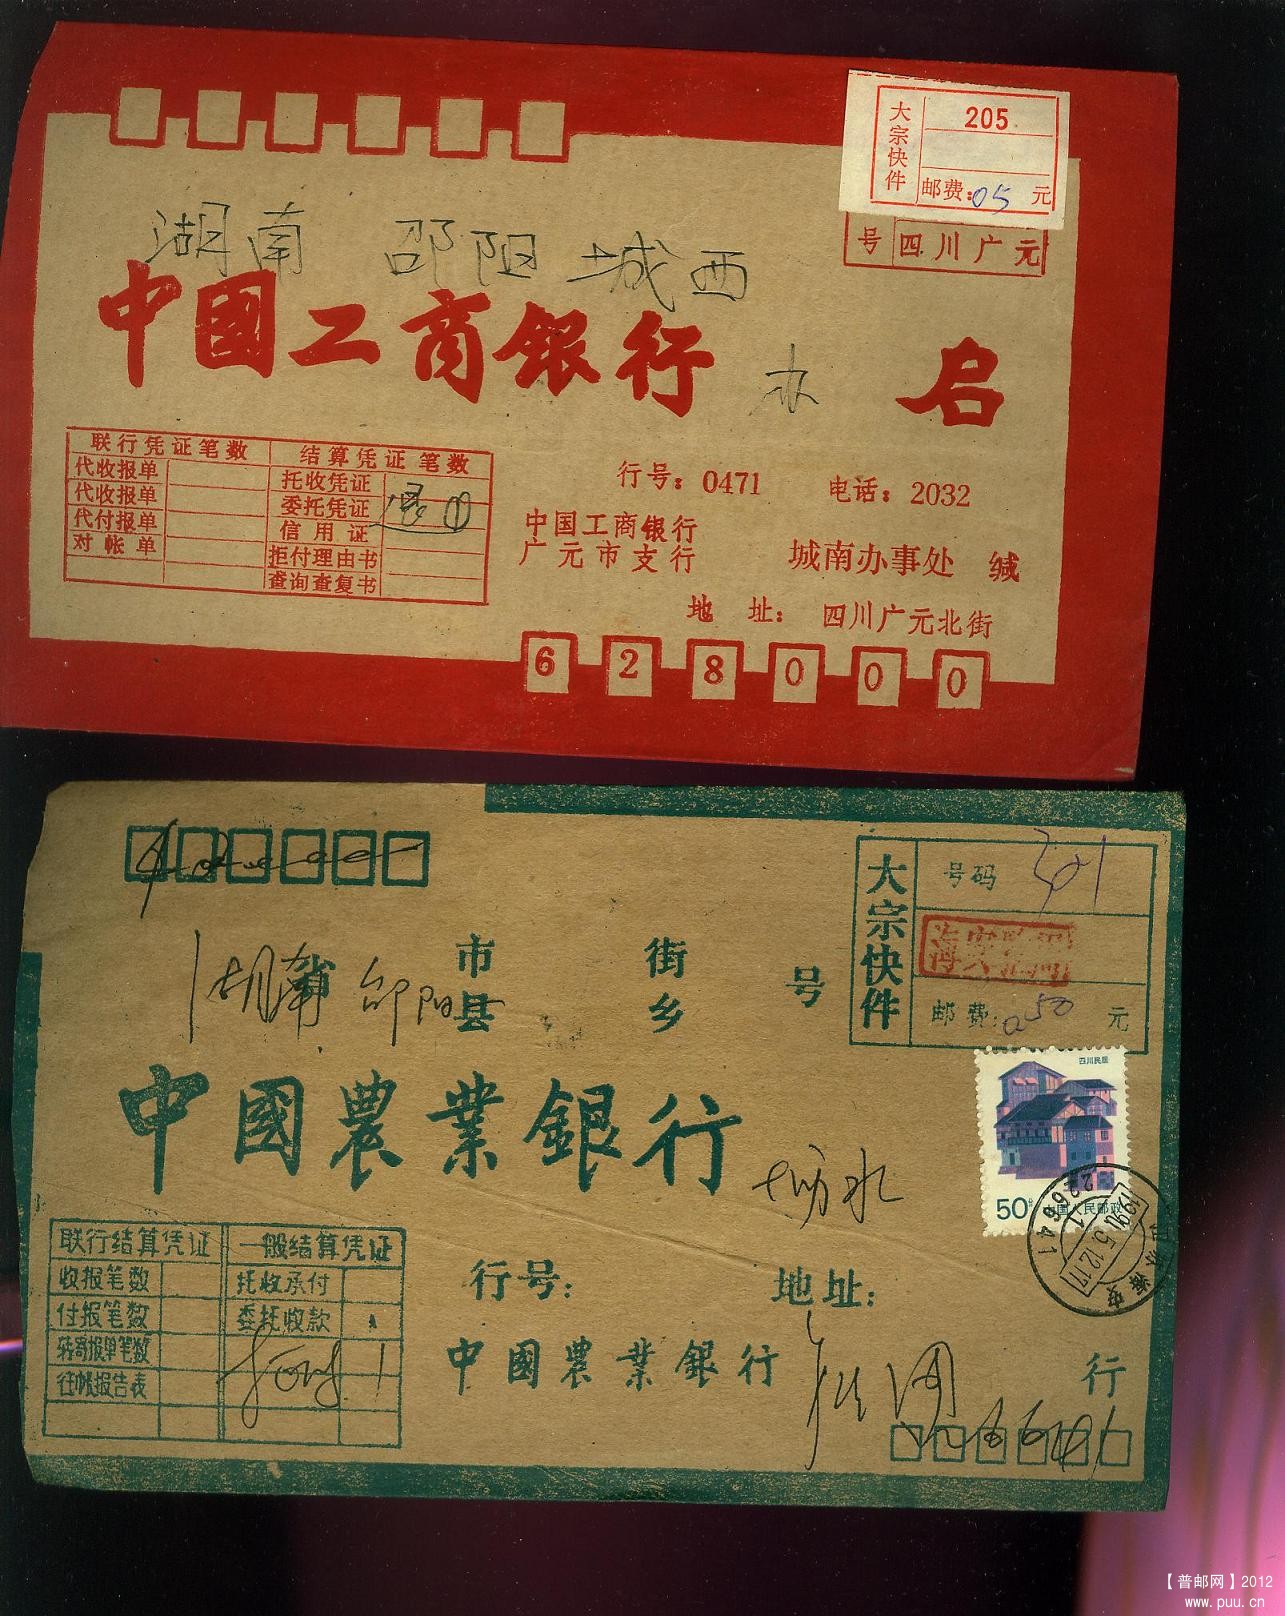 大宗快件
205
邮费:05元
号 四川广元
湖南 邵阳 城西
中國工商銀行 办 启
联行凭证笔数 结算凭证笔数
代收报单 托收凭证
代收报单 委托凭证 ①
代付报单 信用证
对帐单 拒付理由书
查询查复书
行号:0471 电话:2032
中国工商银行
广元市支行 城南办事处 缄
地址: 四川广元北街
628000
大宗快件
号码 301
邮费:0.50元
湖南省 邵阳 市 县 街 乡 号
中國農業銀行
四川民居
50分 中国人民邮政
226641
1991.5.12.17
江苏海安
联行结算凭证 一般结算凭证
收报笔数 托收承付
付报笔数 委托收款
转寄报单笔数 1
往帐报告表
行号: 地址:
中國農業銀行 行
【普邮网】2012
www.puu.cn